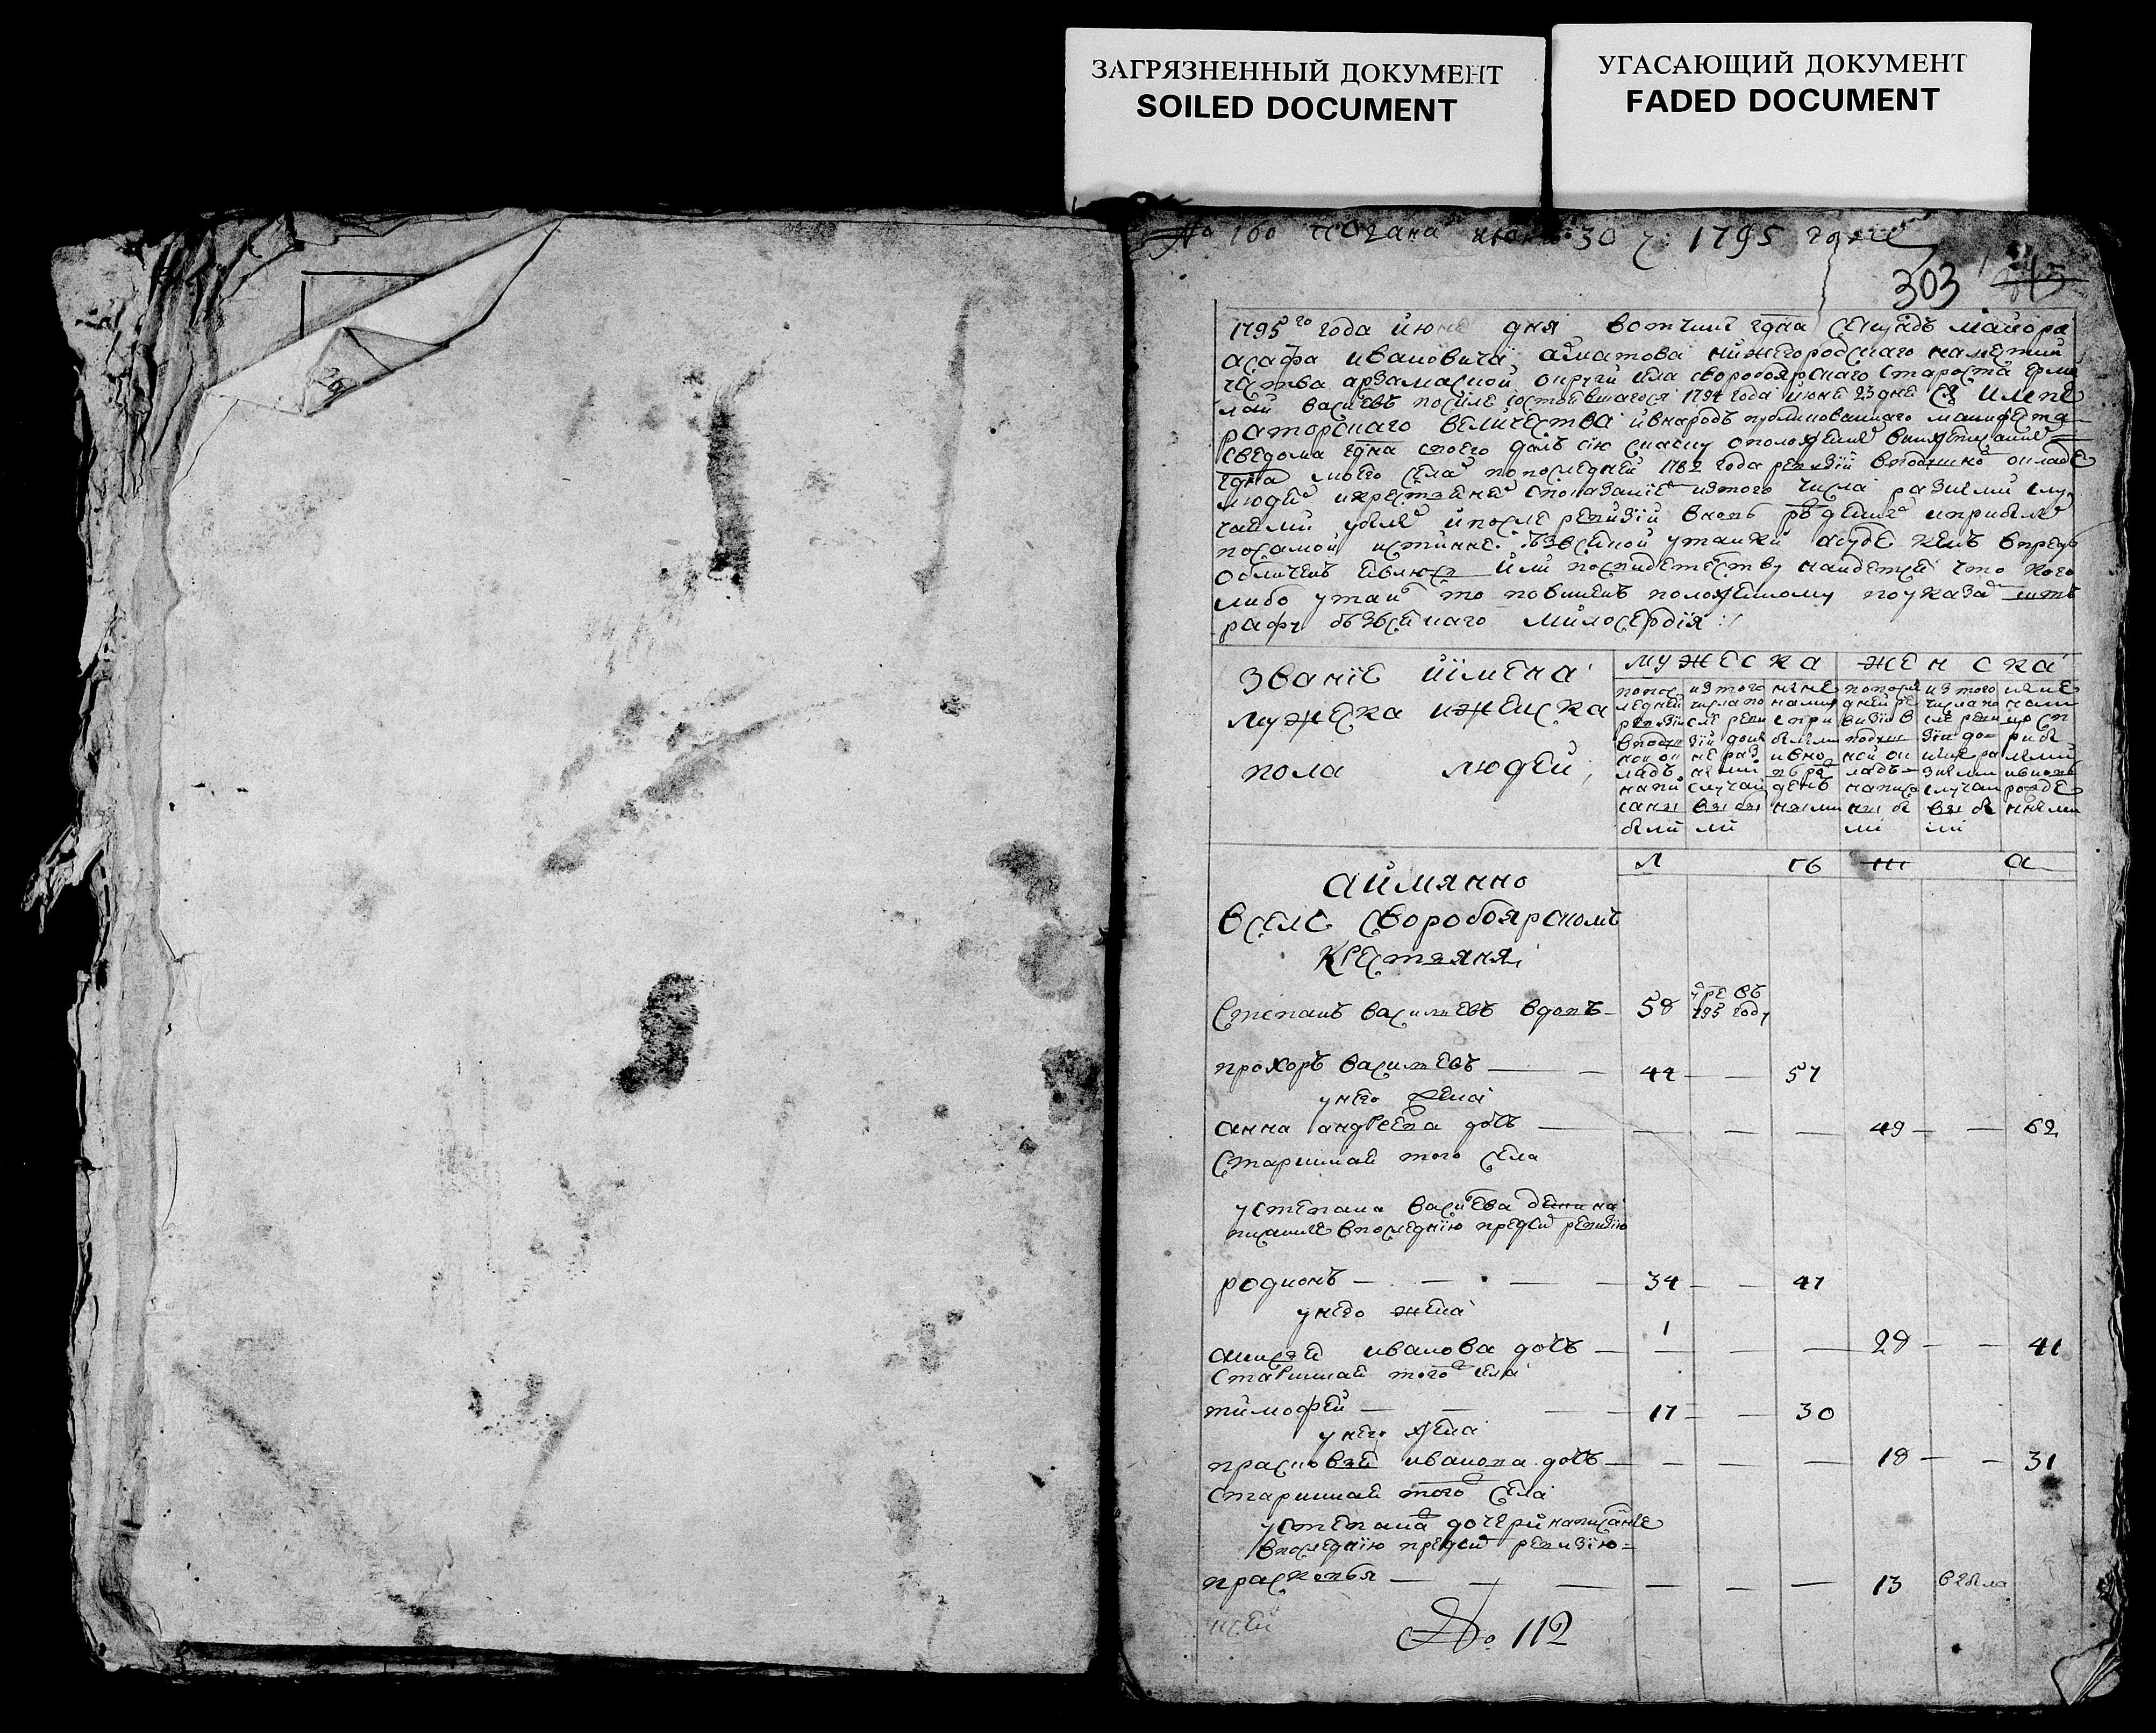 ЗАГРЯЗНЕННЫЙ ДОКУМЕНТ
SOILED DOCUMENT
УГАСАЮЩИЙ ДОКУМЕНТ
FADED DOCUMENT
26
№ 160 июня 30 ч: 1795 года
303 145
1795го года июня дня вотчины гдна секундъ маиора
асафа ивановича нижегородскаго намѣстни
чества арзамаской округи села своробоярскаго староста ерми
лаи васильевъ после состоявшагося 1794 года июня 23 дня Ея импе
раторскаго величества ивнародъ публикованнаго манифеста
сведома гдна своего далъ сию скаску оположенныхъ
гдна моего села попоследней 1782 года ревизии вподушной окладе
людехъ икрестьянехъ споказаниемъ изтого числа разными слу
чаями убылыхъ ипосле ревизии вновь рожденныхъ иприбылыхъ
посамой истинне безвсякой утайки абуде кемъ впредь
обличенъ явлюся или посвидетелству найдется что кого
либо утаилъ то повиненъ положенному поуказамъ шт
рафу безвсякаго милосердия
звание иимена
мужеска иженска
пола людей
мужеска
женска
попос
ледней
ревизии
вподуш
ной ок
ладъ
напи
саны
были
изтого
числа по
сле реви
зии доны
не раз
ными
случаи
выбы
ли
ныне
налицо
спри
былыми
ивно
вь ро
денъ
ными
попосле
дней ре
визии в
подуш
ной ок
ладъ
написа
ны бы
ли
изтого
числа по
сле реви
зии до
ныне ра
зными
случаи
выбы
ли
ныне
нали
цо сп
рибы
лыми
ивновь
рожде
нными
л
ть
а
аимянно
вселе своробоярскомъ
крестьяня
степанъ васильевъ вдовъ 58 умре въ
795 году
прохоръ васильевъ 44 57
унего жена
анна андреева дочь 49 62
стариннай того села
устепана васильева дети на
писанные впоследнию предъ сей ревизию
родионъ 34 47
унего жена
1
аксинья иванова дочь 28 41
стариннай того села
тимофей 17 30
унего жена
прасковья иванова дочь 18 31
стариннай того села
устепана дочери написанные
впоследнию предъ сей ревизию
прасковья 13 выбыла
№ 112